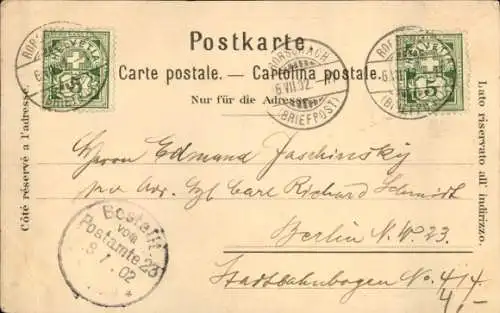 Postkarte.
Carte postale. — Cartolina postale.
Nur für die Adresse.
Côté réservé à l'adresse.
Lato riservato all' indirizzo.
HELVETIA
5
RORSCHACH
6.VII.02.
(BRIEFPOST)
HELVETIA
5
(BRIEFPOST)
Herrn Edmund Jaschinsky
pr. Adr. Carl Richard Schmidt
Berlin N.W. 23.
Stadtbahnbogen No. 414
4,-
Bestellt
vom
Postamte 23
8.7.02